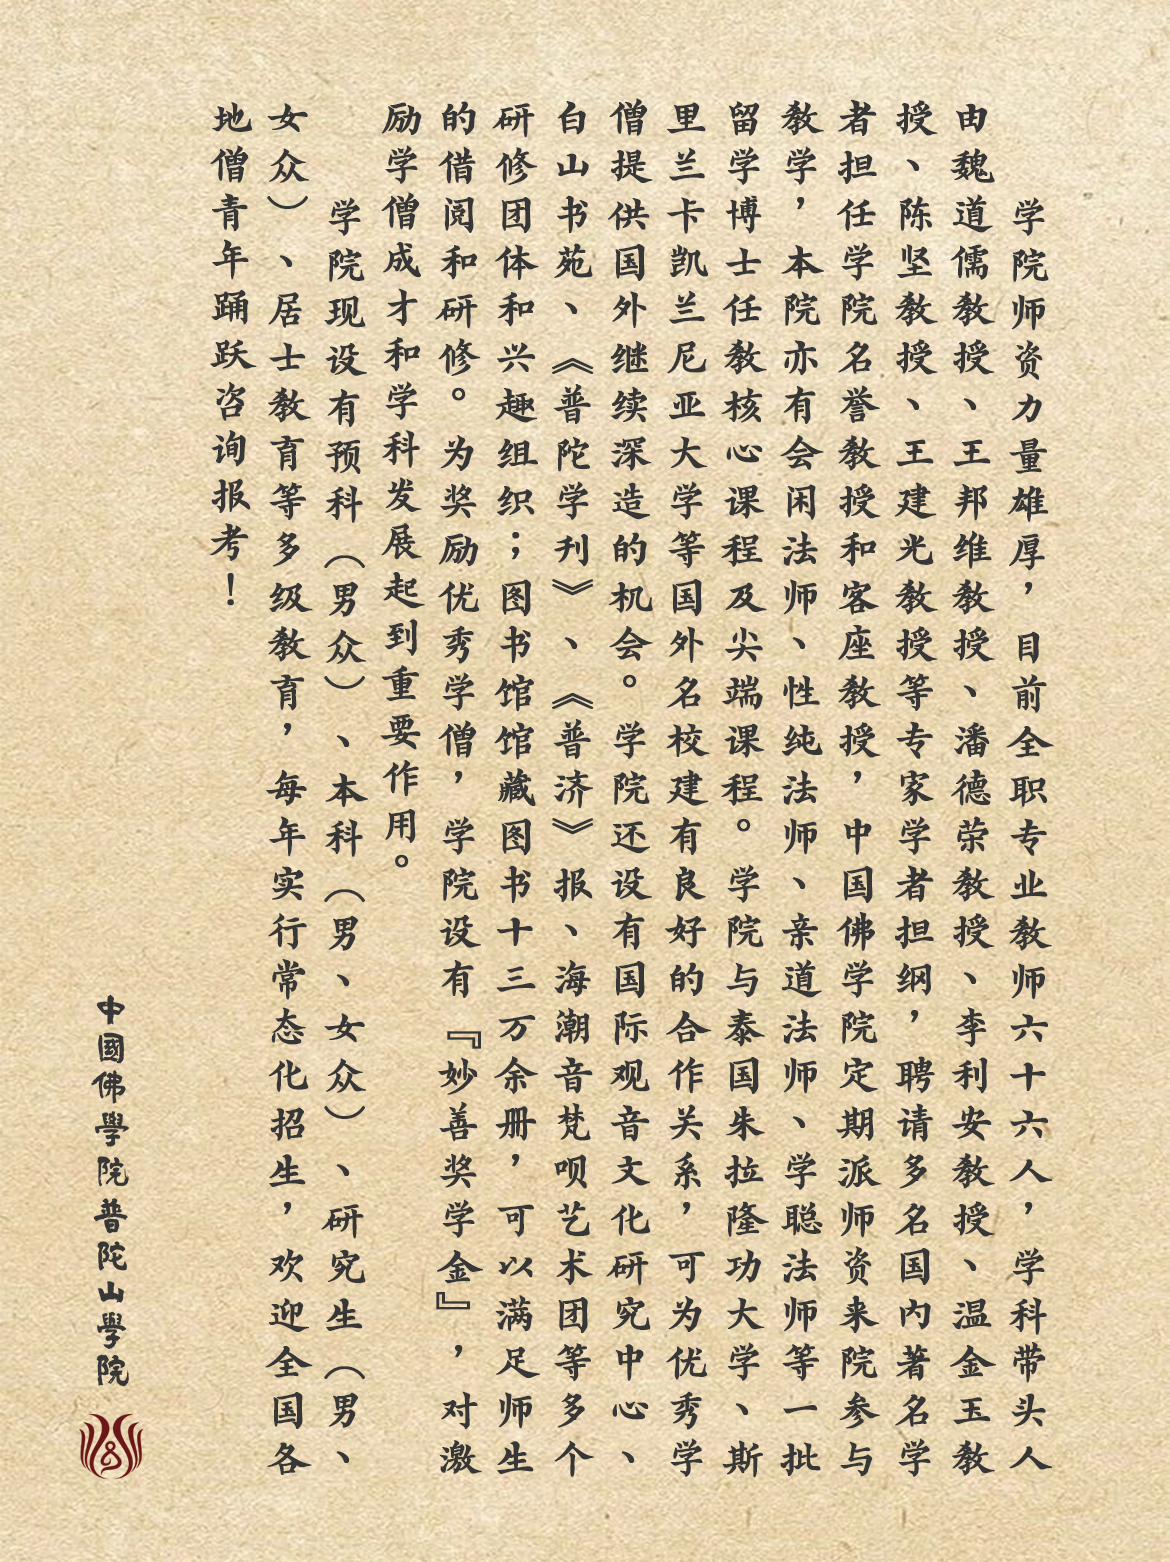 学院师资力量雄厚，目前全职专业教师六十六人，学科带头人
由魏道儒教授、王邦维教授、潘德荣教授、李利安教授、温金玉教
授、陈坚教授、王建光教授等专家学者担纲，聘请多名国内著名学
者担任学院名誉教授和客座教授，中国佛学院定期派师资来院参与
教学，本院亦有会闲法师、性纯法师、亲道法师、学聪法师等一批
留学博士任教核心课程及尖端课程。学院与泰国朱拉隆功大学、斯
里兰卡凯兰尼亚大学等国外名校建有良好的合作关系，可为优秀学
僧提供国外继续深造的机会。学院还设有国际观音文化研究中心、
白山书苑、《普陀学刊》、《普济》报、海潮音梵呗艺术团等多个
研修团体和兴趣组织；图书馆馆藏图书十三万余册，可以满足师生
的借阅和研修。为奖励优秀学僧，学院设有『妙善奖学金』，对激
励学僧成才和学科发展起到重要作用。
学院现设有预科（男众）、本科（男、女众）、研究生（男、
女众）、居士教育等多级教育，每年实行常态化招生，欢迎全国各
地僧青年踊跃咨询报考！
中國佛學院普陀山學院